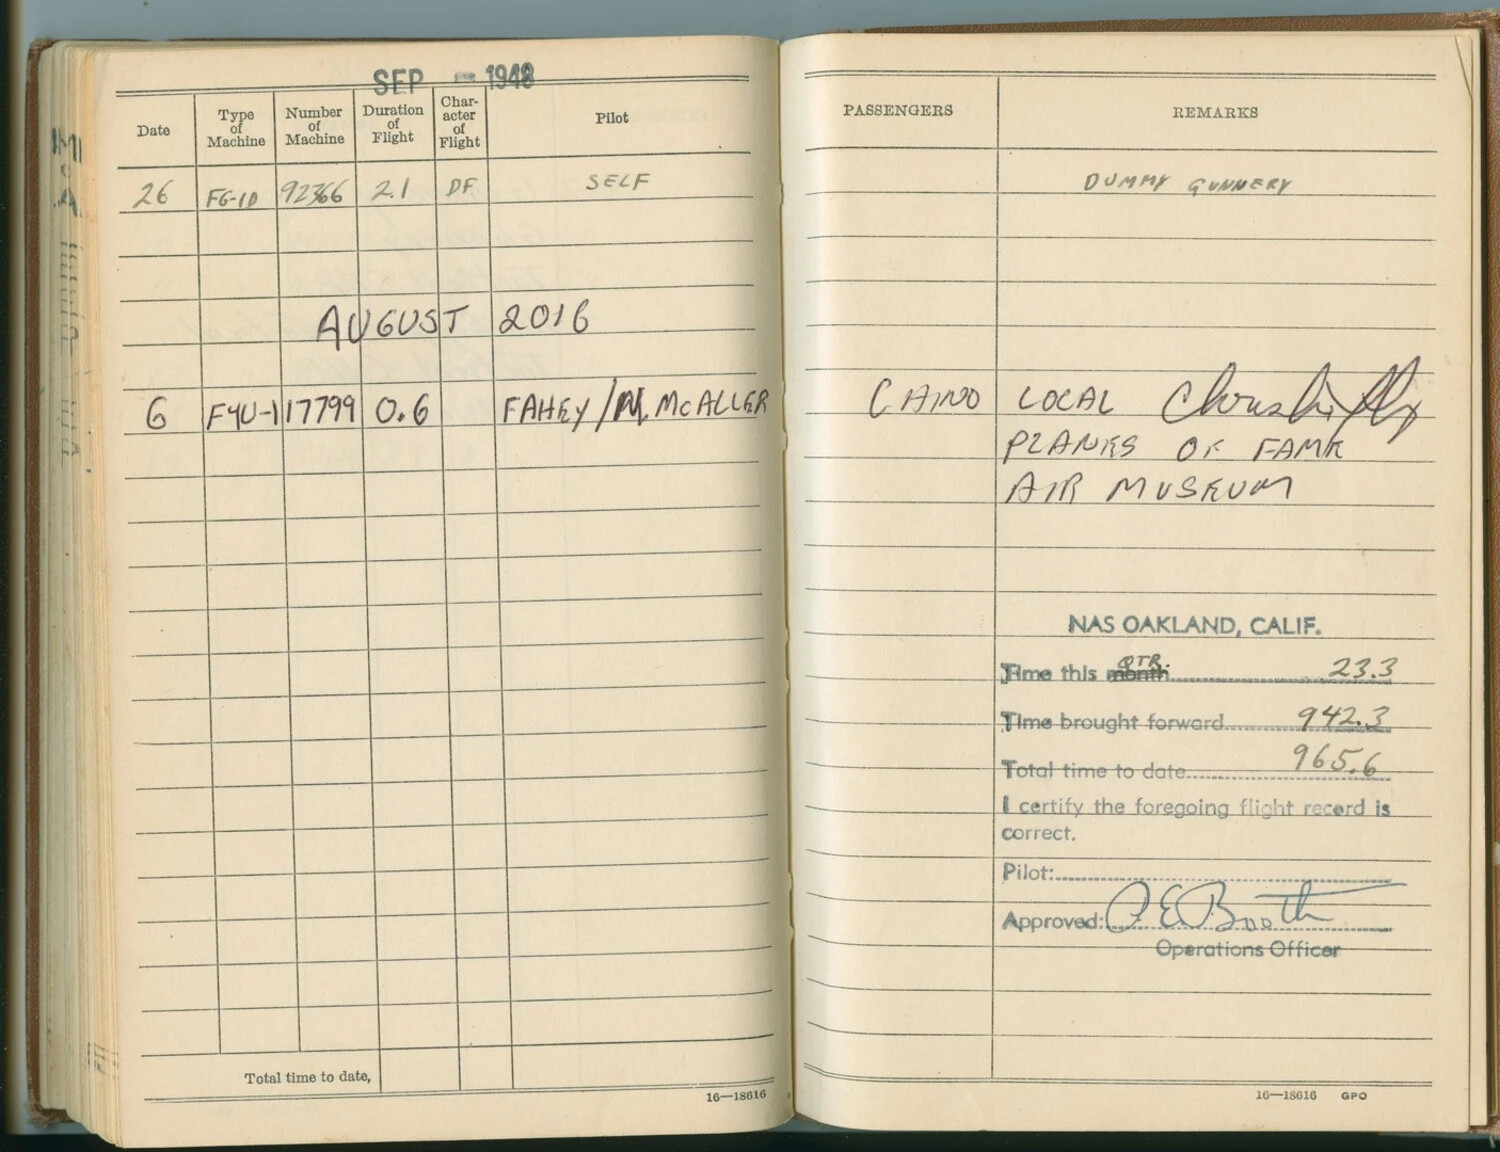 SEP 1948
Date Type of Machine Number of Machine Duration of Flight Char-acter of Flight Pilot
26 FG-1D 92366 2.1 DF SELF
AUGUST 2016
6 F4U-1 17799 0.6 FAHEY / M. McALLER
Total time to date,
16—18616
PASSENGERS REMARKS
DUMMY GUNNERY
CHINO LOCAL
PLANES OF FAME
AIR MUSEUM
NAS OAKLAND, CALIF.
Time this month QTR. 23.3
Time brought forward 942.3
Total time to date 965.6
I certify the foregoing flight record is
correct.
Pilot:
Approved: Booth
Operations Officer
16—18616 GPO